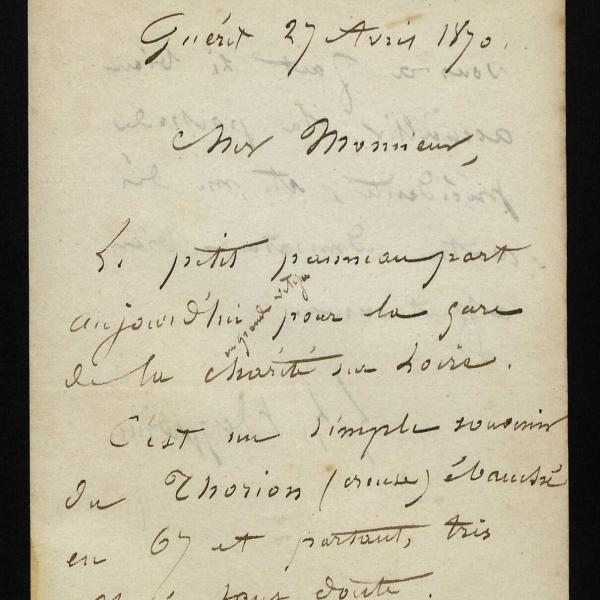 Guérit 27 Avril 1870.
Cher Monsieur,
Le petit panneau part
aujourd'hui en grande vitesse pour la gare
de la charité sur Loire.
C'est un simple souvenir
du Thorion (creuse) ébauché
en 67 et partant, très
sans doute.